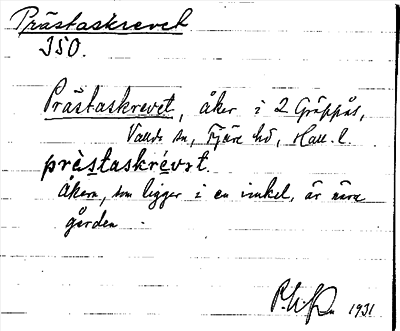 Prästaskrevet
I50.
Prästaskrevet, åker i 2 Gräppås,
Valda sn, Fjäre hd, Hall. l.
pràstaskrévət
åkern, som ligger i en vinkel, är nära
gården.
1931